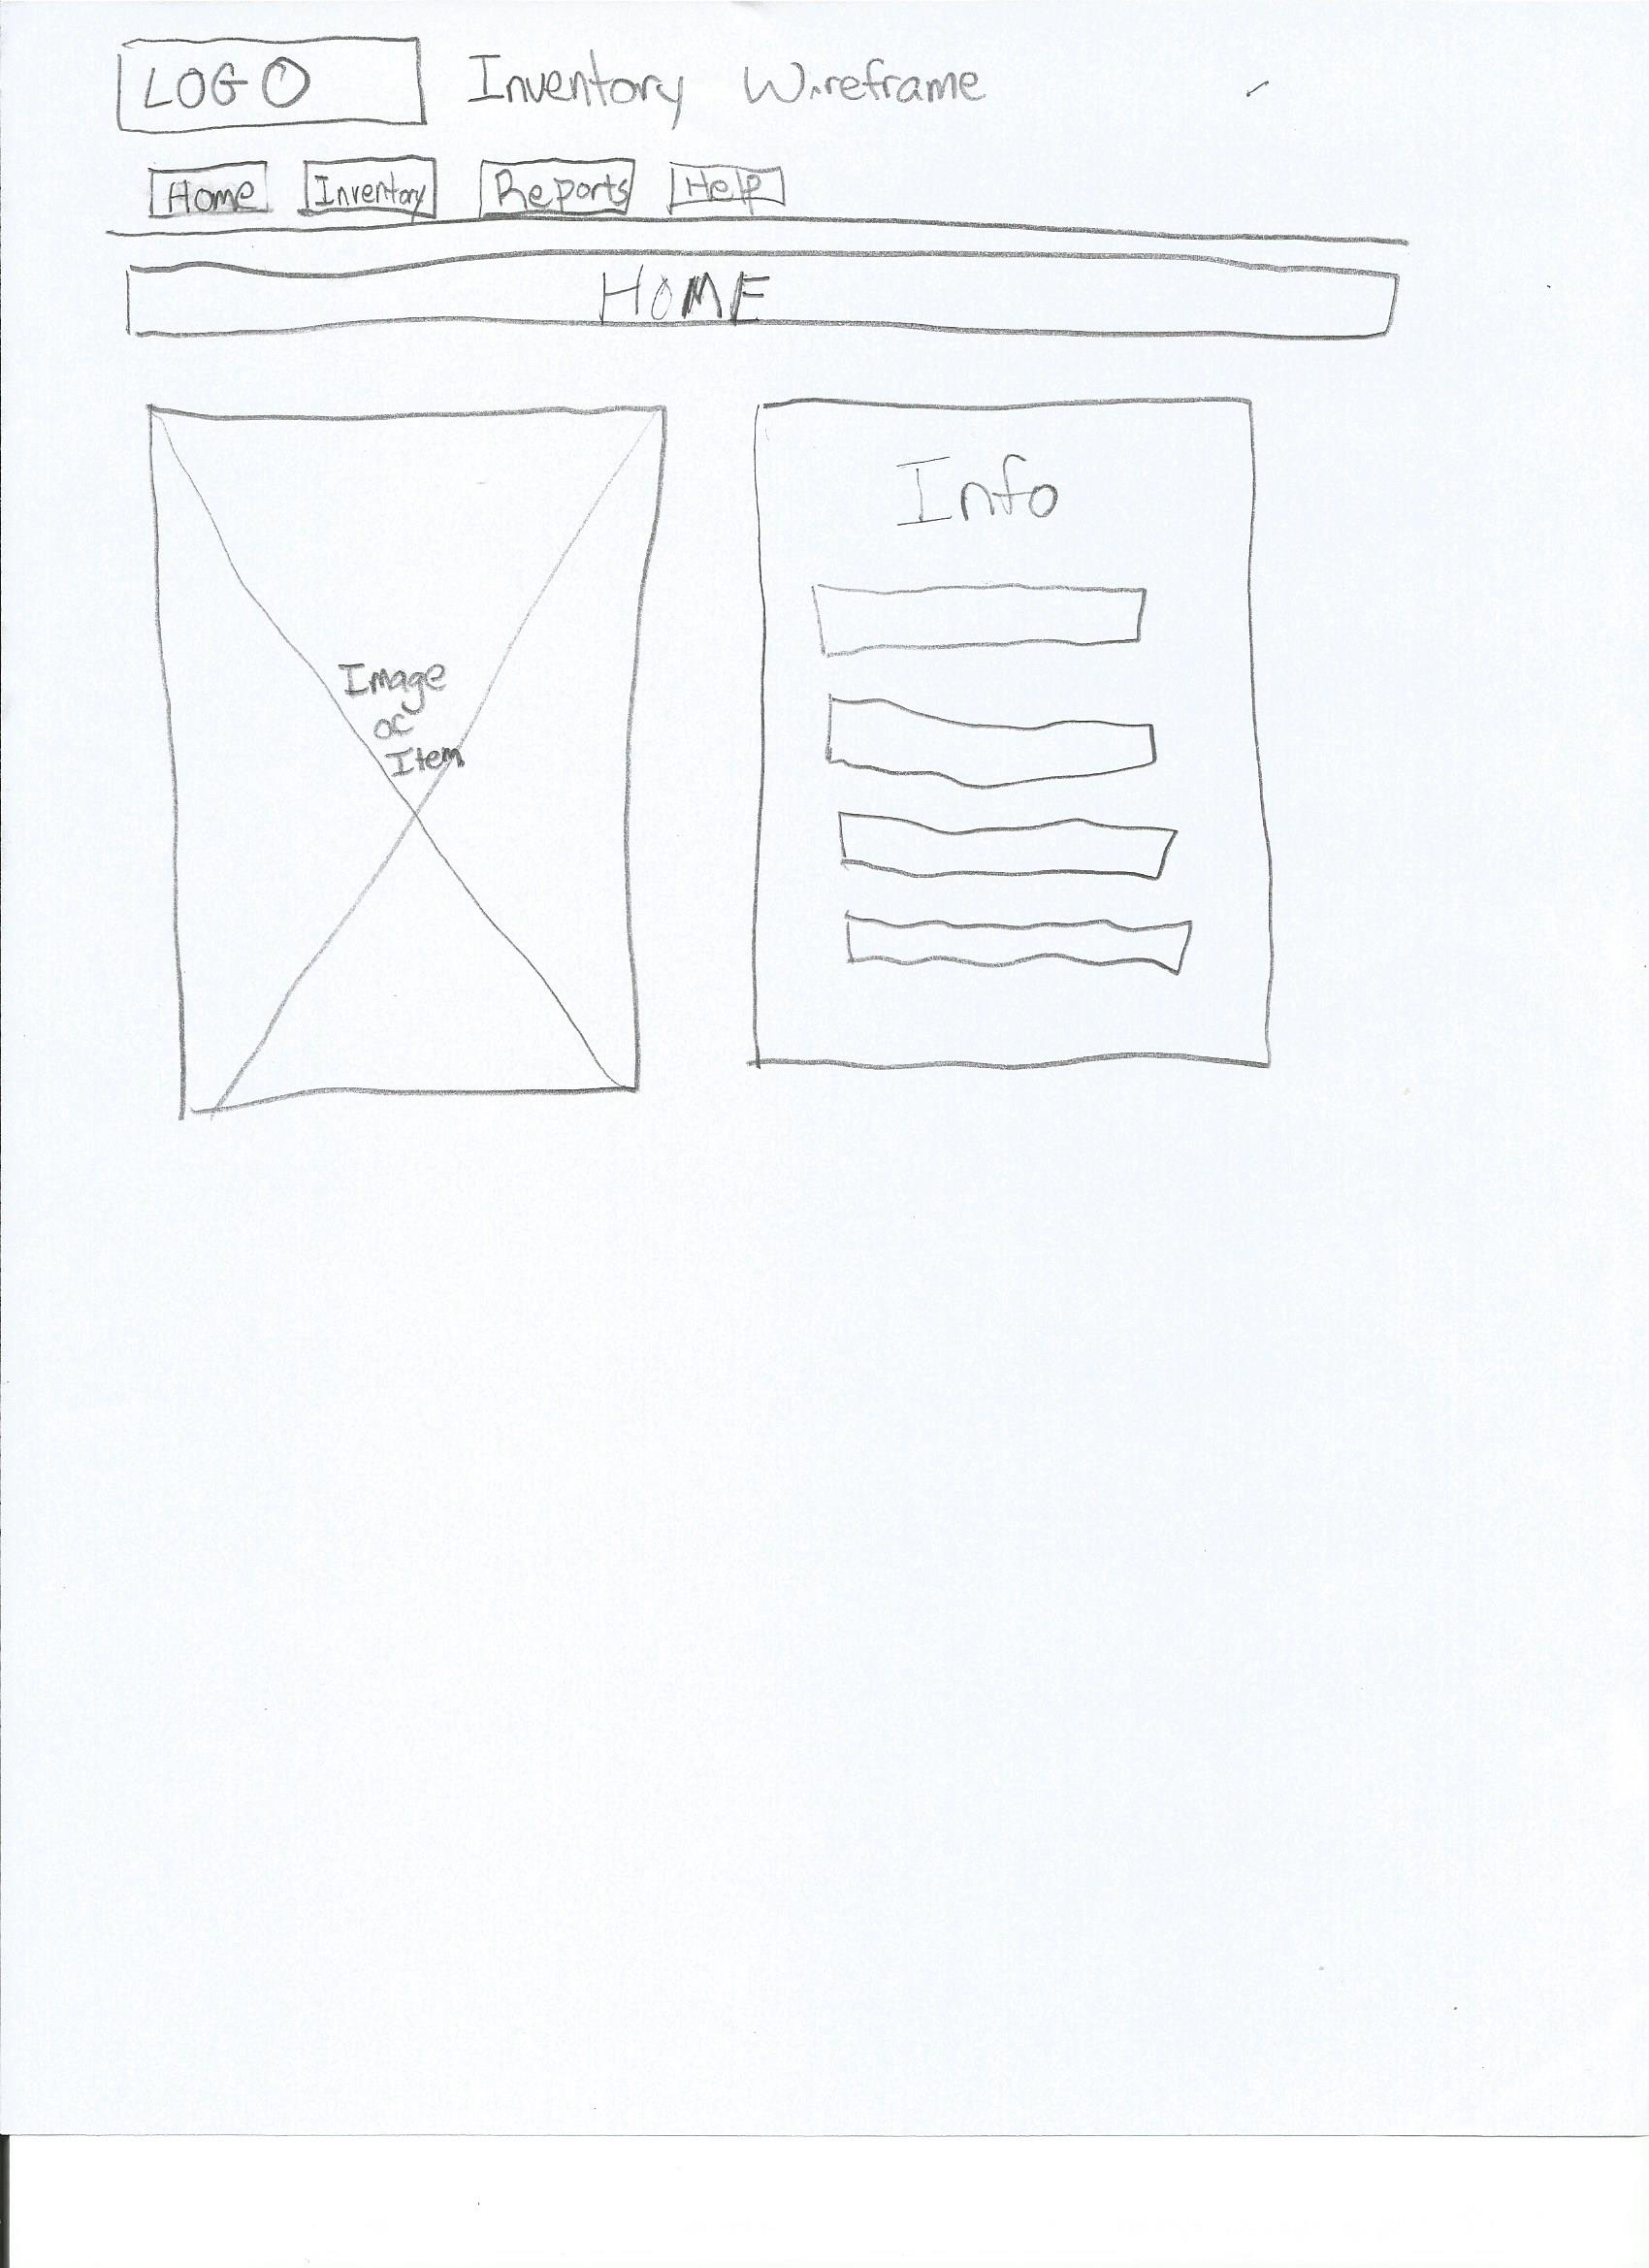 LOGO Inventory Wireframe
Home Inventory Reports Help
HOME
Image
of
Item
Info